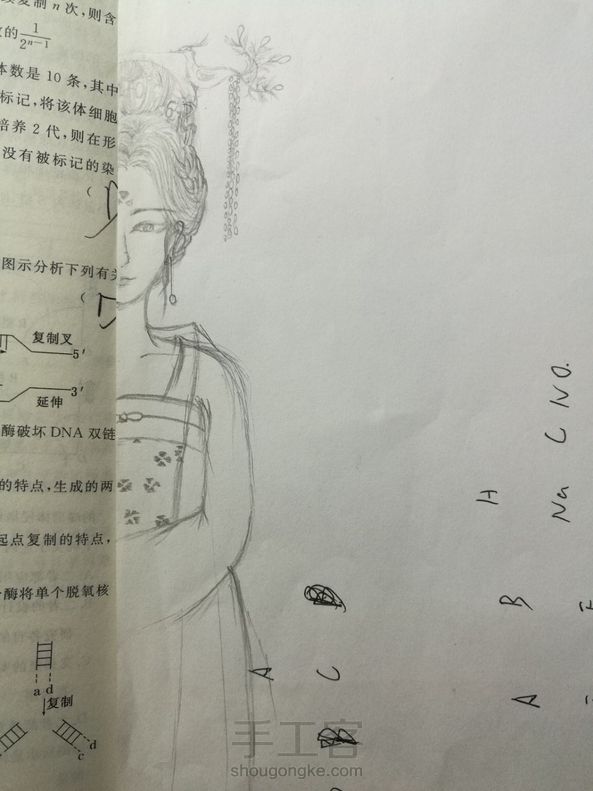 复制 n 次,则含
的 1/2ⁿ⁻¹
体数是 10 条,其中
标记,将该体细胞
培养 2 代,则在形
没有被标记的染
(
图示分析下列有关
(
复制叉
5′
3′
延伸
酶破坏 DNA 双链
的特点,生成的两
起点复制的特点,
酶将单个脱氧核
a d
复制
d
c
A
C
A
B
H
Na C NO.
手工客
shougongke.com